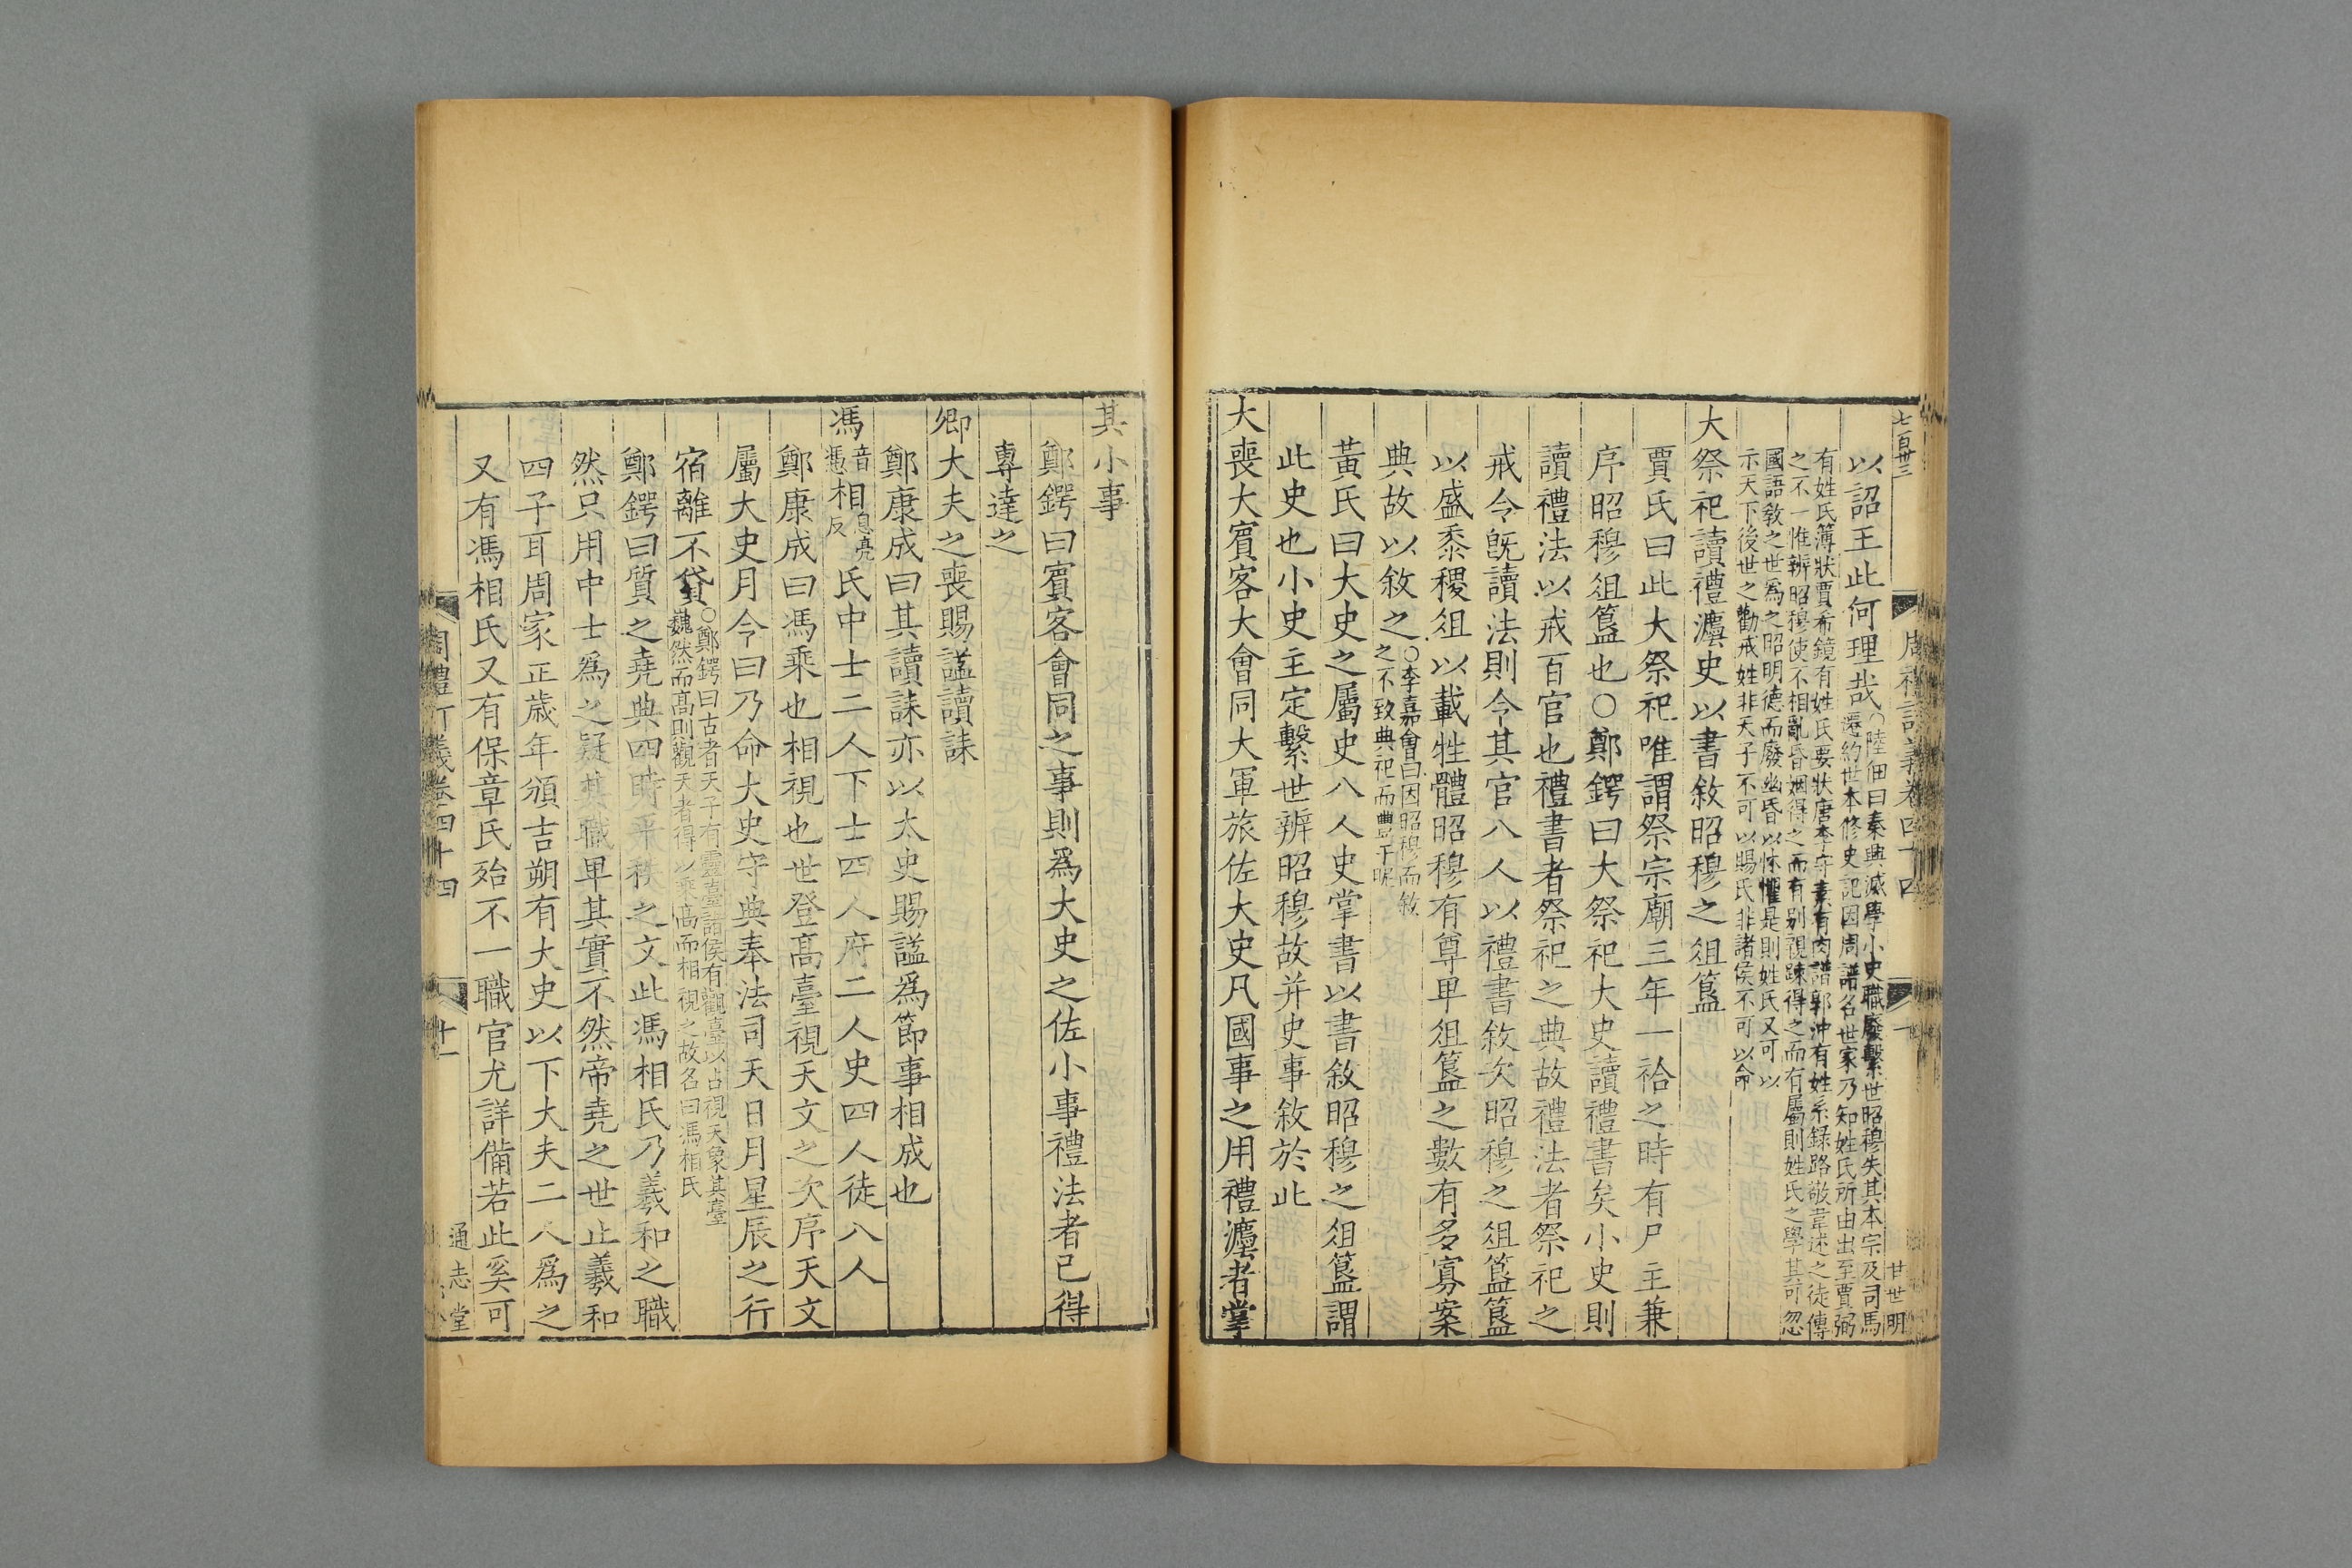 七百卅三
周禮訂義卷四十四
甘世明
以詔王此何理哉○陸佃曰秦典滅學小史職廢繫世昭穆失其本宗及司馬
遷約世本修史記因周譜名世家乃知姓氏所由出至賈弼
有姓氏簿狀賈希鏡有姓氏要狀唐李守素有肉譜郭沖有姓系録路敬韋述之徒傳
之不一惟辨昭穆使不相亂昏姻得之而有别親踈得之而有屬則姓氏之學其可忽
國語敎之世爲之昭明德而廢幽昏以怵懼是則姓氏又可以
示天下後世之勸戒姓非天子不可以賜氏非諸侯不可以命
大祭祀讀禮灋史以書敘昭穆之俎簋
賈氏曰此大祭祀唯謂祭宗廟三年一祫之時有尸主兼
序昭穆俎簋也○鄭鍔曰大祭祀大史讀禮書矣小史則
讀禮法以戒百官也禮書者祭祀之典故禮法者祭祀之
戒令旣讀法則令其官八人以禮書敘次昭穆之俎簋簋
以盛黍稷俎以載牲體昭穆有尊卑俎簋之數有多寡案
典故以敘之○李嘉會曰因昭穆而敘
之不致典祀而豐于昵
黃氏曰大史之屬史八人史掌書以書敘昭穆之俎簋謂
此史也小史主定繫世辨昭穆故并史事敘於此
大喪大賓客大會同大軍旅佐大史凡國事之用禮灋者掌
其小事
鄭鍔曰賓客會同之事則爲大史之佐小事禮法者已得
專達之
卿大夫之喪賜謚讀誄
鄭康成曰其讀誄亦以太史賜謚爲節事相成也
馮音憑相息亮反氏中士二人下士四人府二人史四人徒八人
鄭康成曰馮乘也相視也世登髙臺視天文之次序天文
屬大史月令曰乃命大史守典奉法司天日月星辰之行
宿離不貸○鄭鍔曰古者天子有靈臺諸侯有觀臺以占視天象其臺
魏然而髙則觀天者得以乘髙而相視之故名曰馮相氏
鄭鍔曰質之堯典四時平秩之文此馮相氏乃羲和之職
然只用中士爲之疑其職卑其實不然帝堯之世止羲和
四子耳周家正歳年頒吉朔有大史以下大夫二人爲之
又有馮相氏又有保章氏殆不一職官尤詳備若此奚可
周禮訂義卷四十四
十一
通志堂